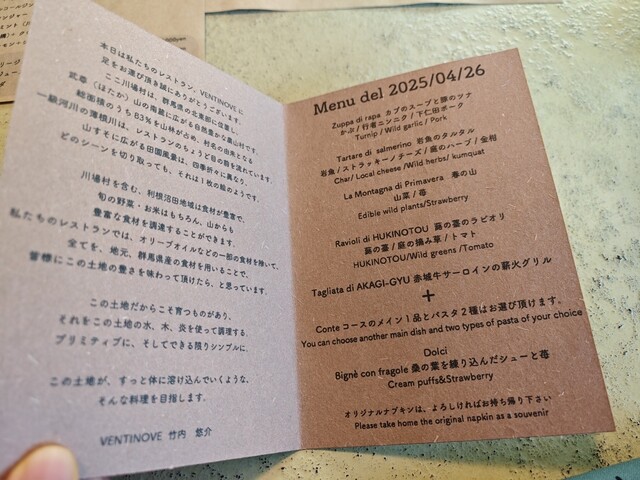 本日は私たちのレストラン、VENTINOVEに
足をお運び頂き誠にありがとうございます。
ここ川場村は、群馬県の北東部に位置し、
武尊（ほたか）山の南麓に広がる自然豊かな農山村です。
総面積のうち83%を山林が占め、村名の由来となる
一級河川の薄根川は、レストランのちょうど目の前を流れています。
山すそに広がる田園風景は、四季折々に異なり、
どのシーンを切り取っても、それは1枚の絵のようです。
川場村を含む、利根沼田地域は食材が豊富で、
旬の野菜・お米はもちろん、山からも
豊富な食材を調達することができます。
私たちのレストランでは、オリーブオイルなどの一部の食材を除いて、
全てを、地元、群馬県産の食材を用いることで、
皆様にこの土地の豊さを味わって頂けたら、と思っています。
この土地だからこそ育つものがあり、
それをこの土地の水、木、炎を使って調理する。
プリミティブに、そしてできる限りシンプルに。
この土地が、すっと体に溶け込んでいくような、
そんな料理を目指します。
VENTINOVE 竹内 悠介
Menu del 2025/04/26
Zuppa di rapa カブのスープと豚のツナ
かぶ / 行者ニンニク / 下仁田ポーク
Turnip / Wild garlic / Pork
Tartare di salmerino 岩魚のタルタル
岩魚 / ストラッキーノチーズ / 庭のハーブ / 金柑
Char/ Local cheese /Wild herbs/ kumquat
La Montagna di Primavera 春の山
山菜 / 苺
Edible wild plants/Strawberry
Ravioli di HUKINOTOU 蕗の薹のラビオリ
蕗の薹 / 庭の摘み草 / トマト
HUKINOTOU/Wild greens /Tomato
Tagliata di AKAGI-GYU 赤城牛サーロインの薪火グリル
+
Conte コースのメイン1品とパスタ2種はお選び頂けます。
You can choose another main dish and two types of pasta of your choice
Dolci
Bignè con fragole 桑の葉を練り込んだシューと苺
Cream puffs&Strawberry
オリジナルナプキンは、よろしければお持ち帰り下さい
Please take home the original napkin as a souvenir